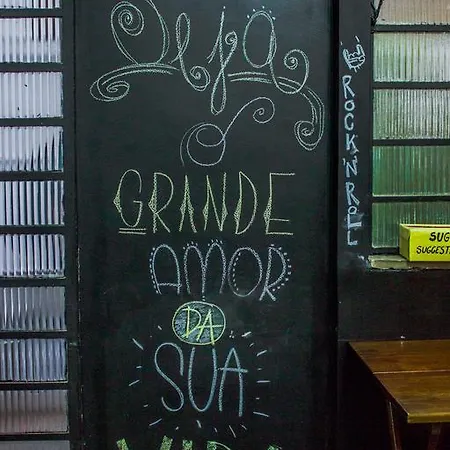 Seja
o
GRANDE
AMOR
DA
SUA
VIDA
ROCK'N'RÔL
SUG
SUGGEST